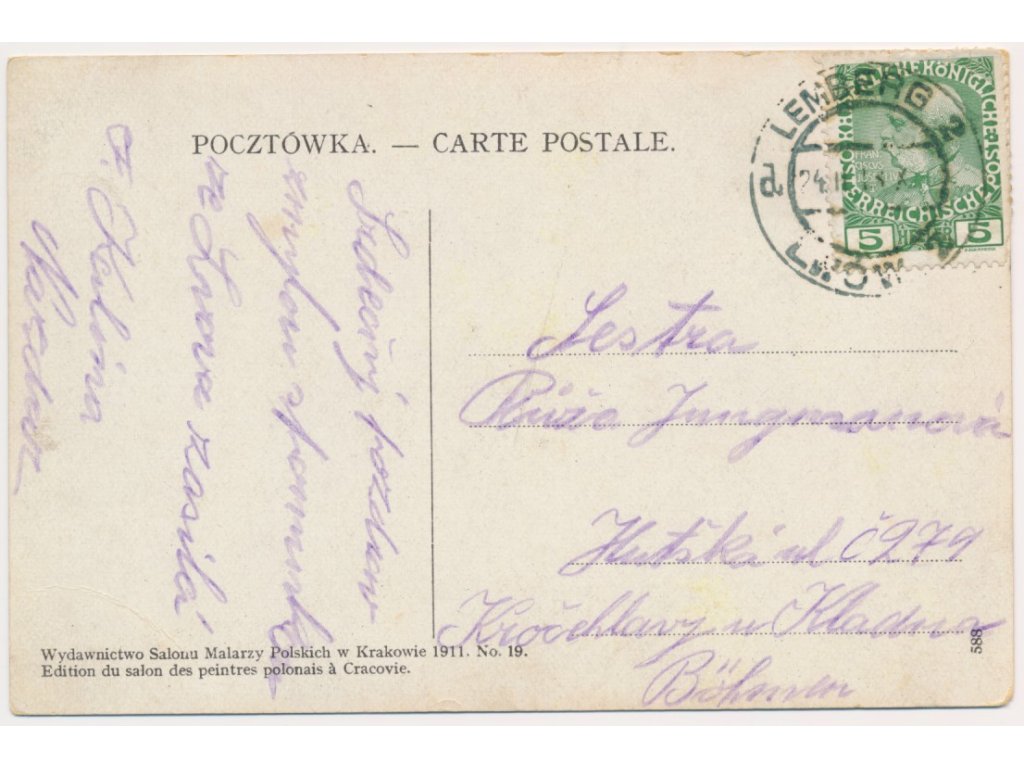 POCZTÓWKA. — CARTE POSTALE.
LEMBERG 2
LWÓW 2
d
24.II
KAISERLICHE KÖNIGLICHE
ÖSTERREICHISCHE POST
5 HELLER 5
Sestra
Růža Jungmanová
Huťská ul č 279
Kročehlavy u Kladna
Böhmen
Srdečný pozdrav
ze Lvova zasílá
588
Wydawnictwo Salonu Malarzy Polskich w Krakowie 1911. No. 19.
Edition du salon des peintres polonais à Cracovie.